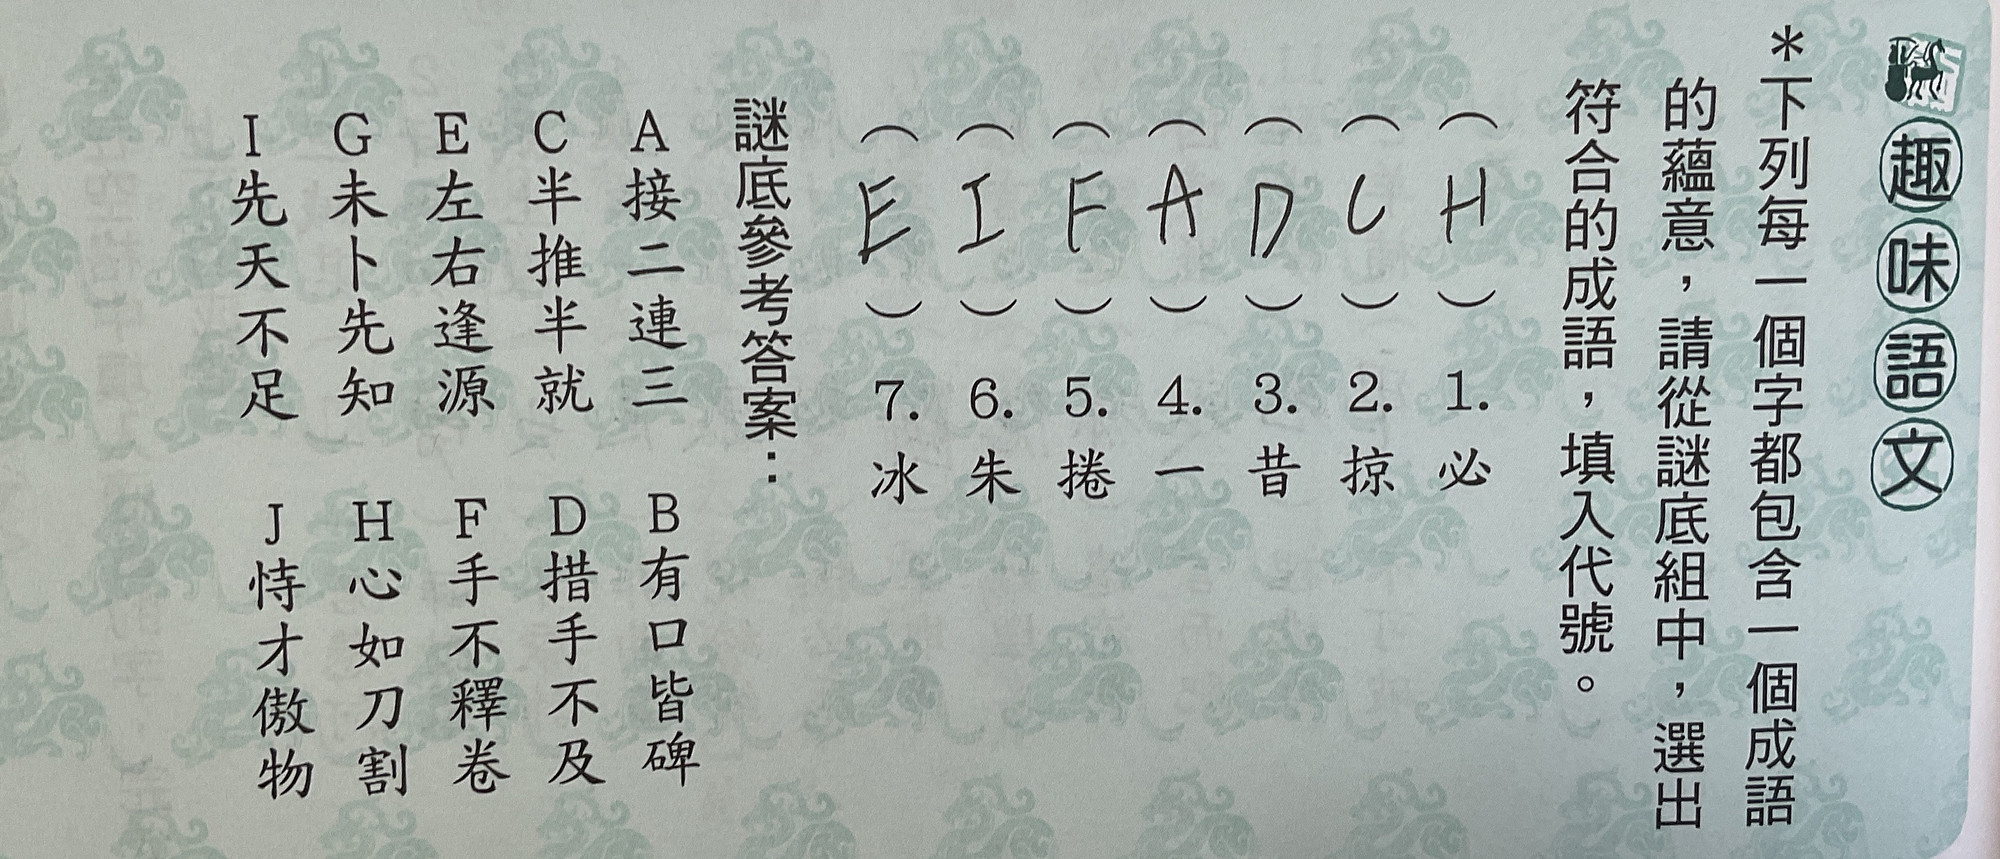 趣味語文
＊下列每一個字都包含一個成語
的蘊意，請從謎底組中，選出
符合的成語，填入代號。
（H）1.必
（C）2.掠
（D）3.昔
（A）4.一
（F）5.捲
（I）6.朱
（E）7.冰
謎底參考答案：
A接二連三 B有口皆碑
C半推半就 D措手不及
E左右逢源 F手不釋卷
G未卜先知 H心如刀割
I先天不足 J恃才傲物